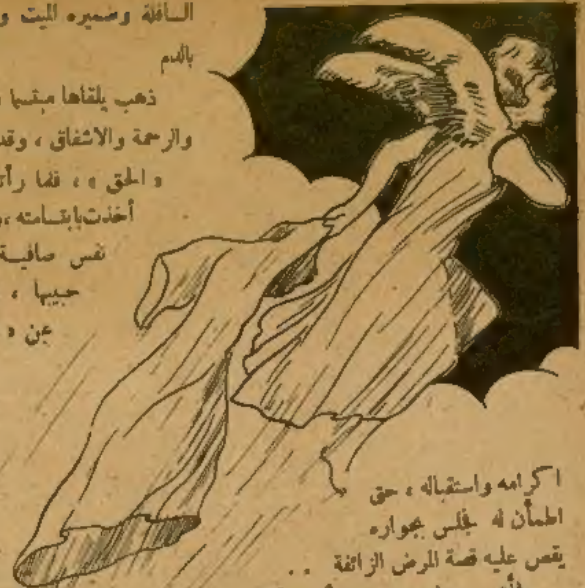 السافلة وضميره الميت و
بالدم
ذهب يلقاها مبتسما
والرحمة والاشفاق ، وقد
« الحق » ، فلما رأته
أخذت بابتسامته ،
نفس صافية
حبيبها ،
عن «
اكرامه واستقباله ، حتى
اطمأن له فجلس بجواره
يقص عليه قصة المرض الزائفة . .